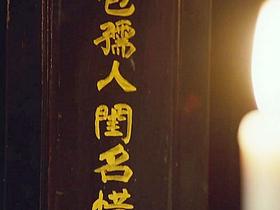 孺人閨名